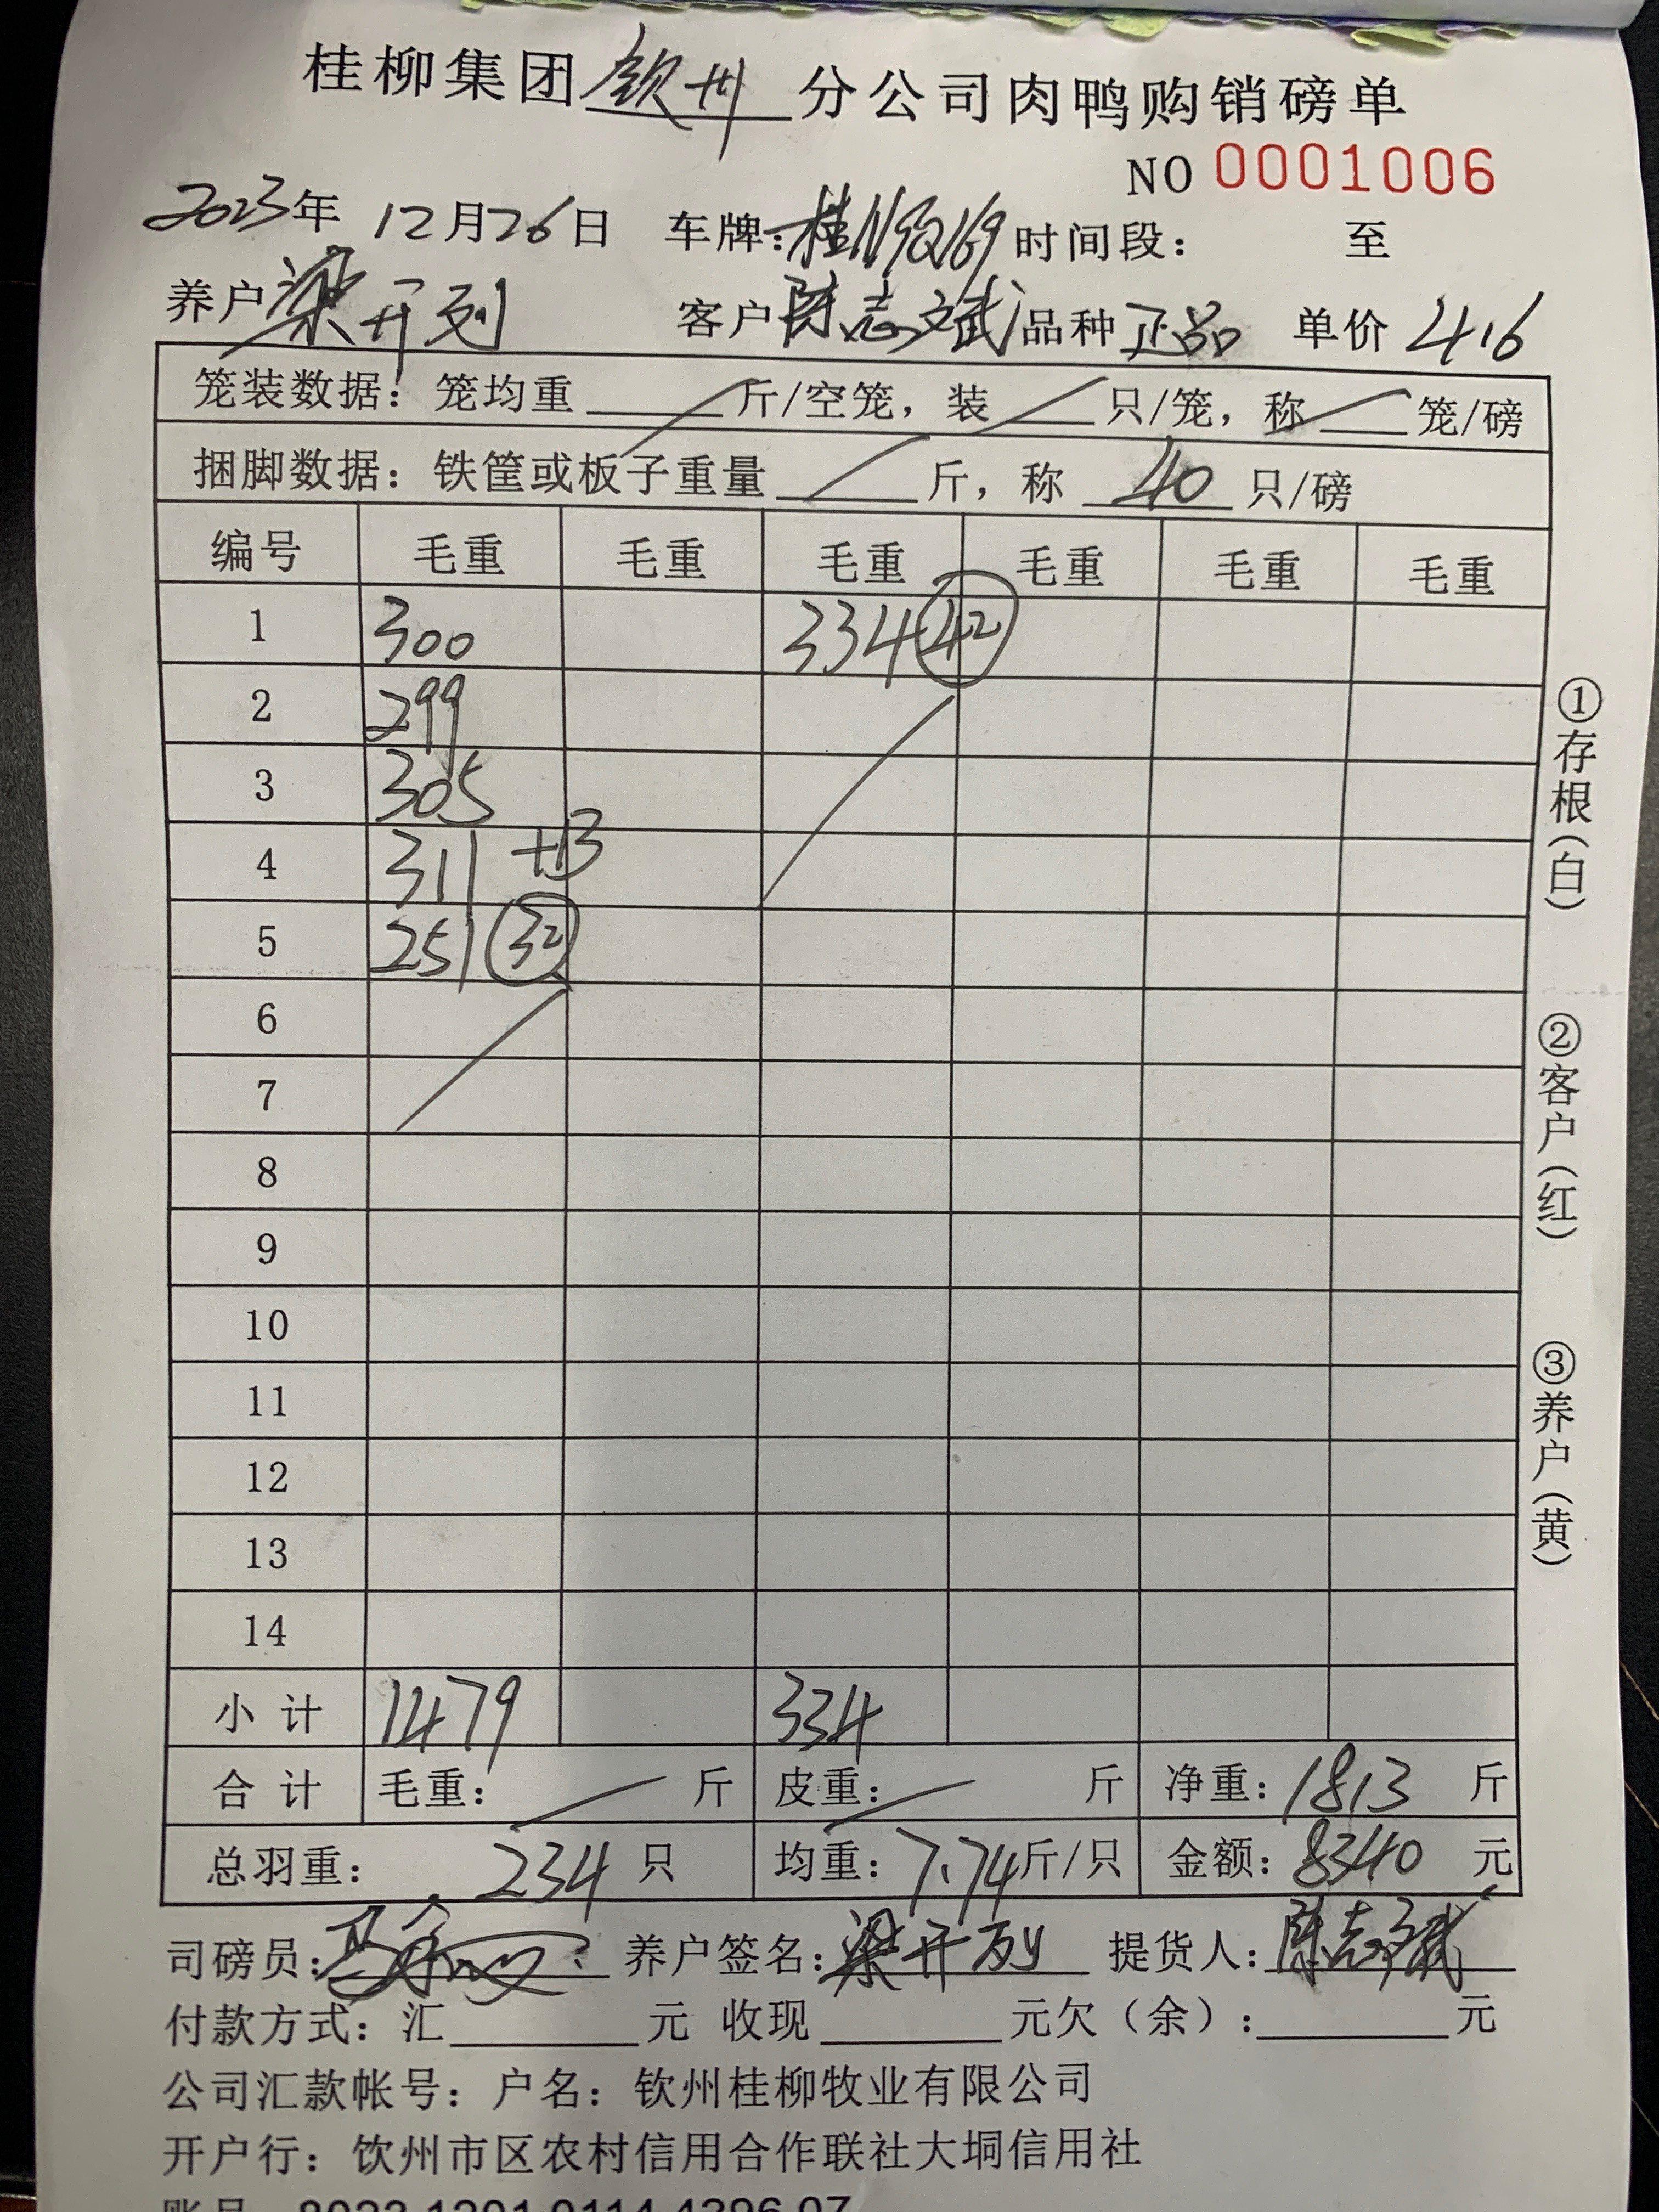 桂柳集团钦州分公司肉鸭购销磅单
NO 0001006
2023年 12月26日 车牌: 时间段: 至
养户 梁开列 客户 陈志斌 品种 正品 单价 4.6
笼装数据: 笼均重 斤/空笼, 装 只/笼, 称 笼/磅
捆脚数据: 铁筐或板子重量 斤, 称 40 只/磅
编号 毛重 毛重 毛重 毛重 毛重 毛重
1 300 334 42
2 299
3 305
4 311 +13
5 251 32
6
7
8
9
10
11
12
13
14
小计 1479 334
合计 毛重: 斤 皮重: 斤 净重: 1813 斤
总羽重: 234 只 均重: 7.74 斤/只 金额: 8340 元
司磅员: 养户签名: 梁开列 提货人: 陈志斌
付款方式: 汇 元 收现 元欠(余): 元
公司汇款帐号: 户名: 钦州桂柳牧业有限公司
开户行: 钦州市区农村信用合作联社大垌信用社
①存根(白)
②客户(红)
③养户(黄)